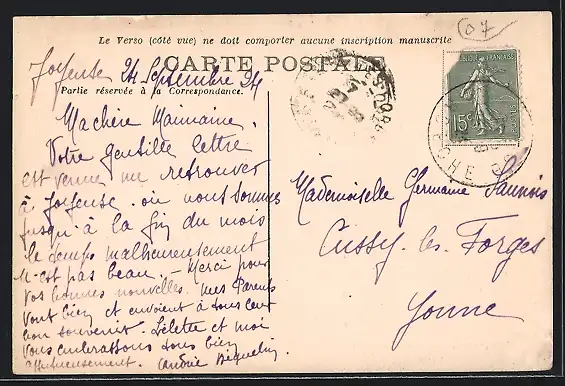 07
Le Verso (côté vue) ne doit comporter aucune inscription manuscrite
CARTE POSTALE
Joyeuse 24 Septembre 24
Partie réservée à la Correspondance.
Ma chère Mainaine.
Votre gentille lettre
est venue me retrouver
à Joyeuse. où nous sommes
jusqu'à la fin du mois
le temps malheureusement
n'est pas beau. - Merci pour
vos bonnes nouvelles. mes Parents
vont bien et envoient à tous leur
bon souvenir. Lilette et moi
vous embrassons tous bien
affectueusement.
Mademoiselle Germaine
Cussy-les-Forges
Yonne
FRANÇAISE
15c
POSTES